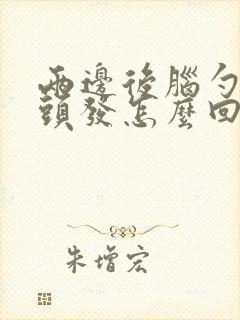 兩邊後腦勺
頭發怎麼回
朱增宏